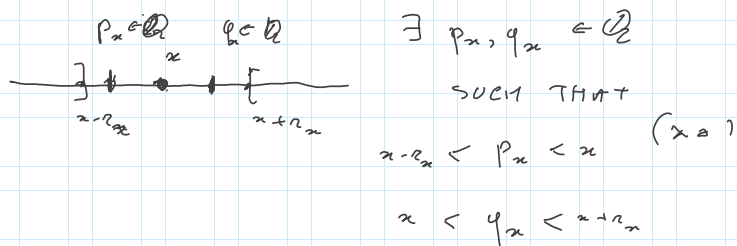 pₓ ∈ ℚ qₓ ∈ ℚ
x
] [
x-rₓ x+rₓ
∃ pₓ, qₓ ∈ ℚ
SUCH THAT
x-rₓ < pₓ < x
x < qₓ < x+rₓ